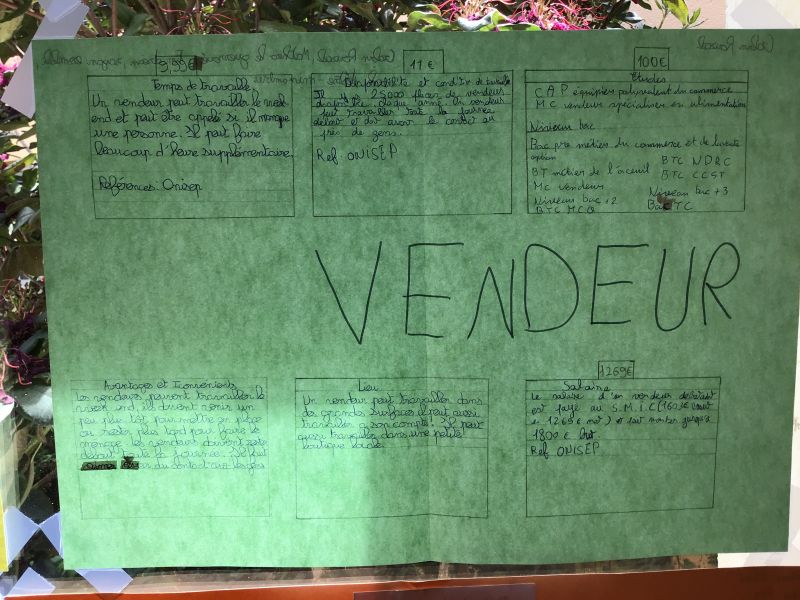 3,55€
Temps de travaille
Un vendeur peut travailler le week
end et peut être appelé si il manque
une personne. Il peut faire
beaucoup d'heure supplémentaire.
Références: Onisep
11 €
Disponibilité et condition de travaille
Il y a 25000 places de vendeurs
disponible chaque année. Un vendeur
peut travailler tout la journée
debout et doit avoir le contact au
près de gens.
Ref: ONISEP
100€
Etudes
CAP équipier polyvalent du commerce
MC vendeurs spécialiser en alimentation
Niveau bac
Bac pro métiers du commerce et de la vente
option
BT métier de l'aceuil
MC vendeurs
Niveau bac +2
BTC MCO
BTC NDRC
BTC CCST
Niveau bac +3
Bac TC
VENDEUR
Avantages et Inconvénients
Les vendeurs peuvent travailler le
week end, ils doivent venir un
peu plus tôt pour mettre en place
ou rester plus tard pour faire le
menage. les vendeurs doivent rester
debout toute la journée. Il faut
du contact avec les gens
Lieu
Un vendeur peut travailler dans
des grandes surfaces il peut aussi
travailler a son compte. Il peut
aussi travailler dans une petite
boutique locale.
1269€
Salaire
Le salaire d'un vendeur debutant
est payé au S.M.I.C (1603€ brut
e 1269€ net) et peut monter jusqu'à
1800 € brut
Ref ONISEP